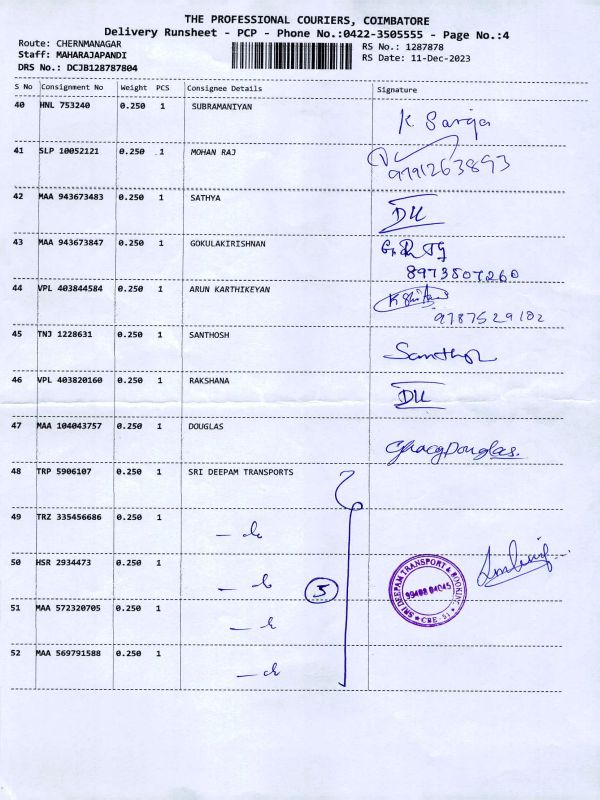 THE PROFESSIONAL COURIERS, COIMBATORE
Delivery Runsheet - PCP - Phone No.:0422-3505555 - Page No.:4
Route: CHERNMANAGAR
RS No.: 1287878
Staff: MAHARAJAPANDI
RS Date: 11-Dec-2023
DRS No.: DCJB128787804
S No Consignment No Weight PCS Consignee Details Signature
40 HNL 753240 0.250 1 SUBRAMANIYAN
K
41 SLP 10052121 0.250 1 MOHAN RAJ
9791263893
42 MAA 943673483 0.250 1 SATHYA
43 MAA 943673847 0.250 1 GOKULAKIRISHNAN
8973807260
44 VPL 403844584 0.250 1 ARUN KARTHIKEYAN
9787529102
45 TNJ 1228631 0.250 1 SANTHOSH
46 VPL 403820160 0.250 1 RAKSHANA
47 MAA 104043757 0.250 1 DOUGLAS
Douglas.
48 TRP 5906107 0.250 1 SRI DEEPAM TRANSPORTS
49 TRZ 335456686 0.250 1
50 HSR 2934473 0.250 1
5
SRI DEEPAM TRANSPORT & BOOKING
99408 04045
CBE-51
51 MAA 572320705 0.250 1
52 MAA 569791588 0.250 1